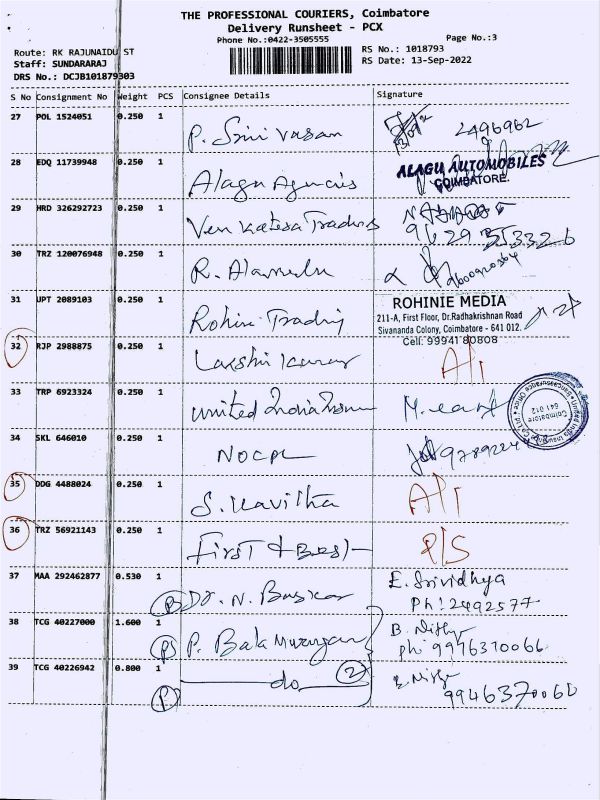 THE PROFESSIONAL COURIERS, Coimbatore
Delivery Runsheet - PCX
Phone No.:0422-3505555
Page No.:3
Route: RK RAJUNAIDU ST
Staff: SUNDARARAJ
DRS No.: DCJB101879303
RS No.: 1018793
RS Date: 13-Sep-2022
S No Consignment No Weight PCS Consignee Details Signature
27 POL 1524051 0.250 1 P. Srinivasan 2496962
28 EDQ 11739948 0.250 1 Alagu Agencies ALAGU AUTOMOBILES
COIMBATORE.
29 HRD 326292723 0.250 1 Venkatesa Traders
30 TRZ 120076948 0.250 1 R. Alamelu
31 UPT 2089103 0.250 1 Rohini Trading ROHINIE MEDIA
211-A, First Floor, Dr.Radhakrishnan Road
Sivananda Colony, Coimbatore - 641 012.
Cell: 99941 80808
32 RJP 2988875 0.250 1 Lakshmi
33 TRP 6923324 0.250 1 United India Insu
Coimbatore
641 012
34 SKL 646010 0.250 1 NOCPL
35 DDG 4488024 0.250 1 S. Kavitha
36 TRZ 56921143 0.250 1 First
37 MAA 292462877 0.530 1 P Dr. N. Baskar E. Srividhya
Ph: 2492577
38 TCG 40227000 1.600 1 P. Bala Murugan B. Nithya
ph: 9976370066
39 TCG 40226942 0.800 1 P do 2
9946370066